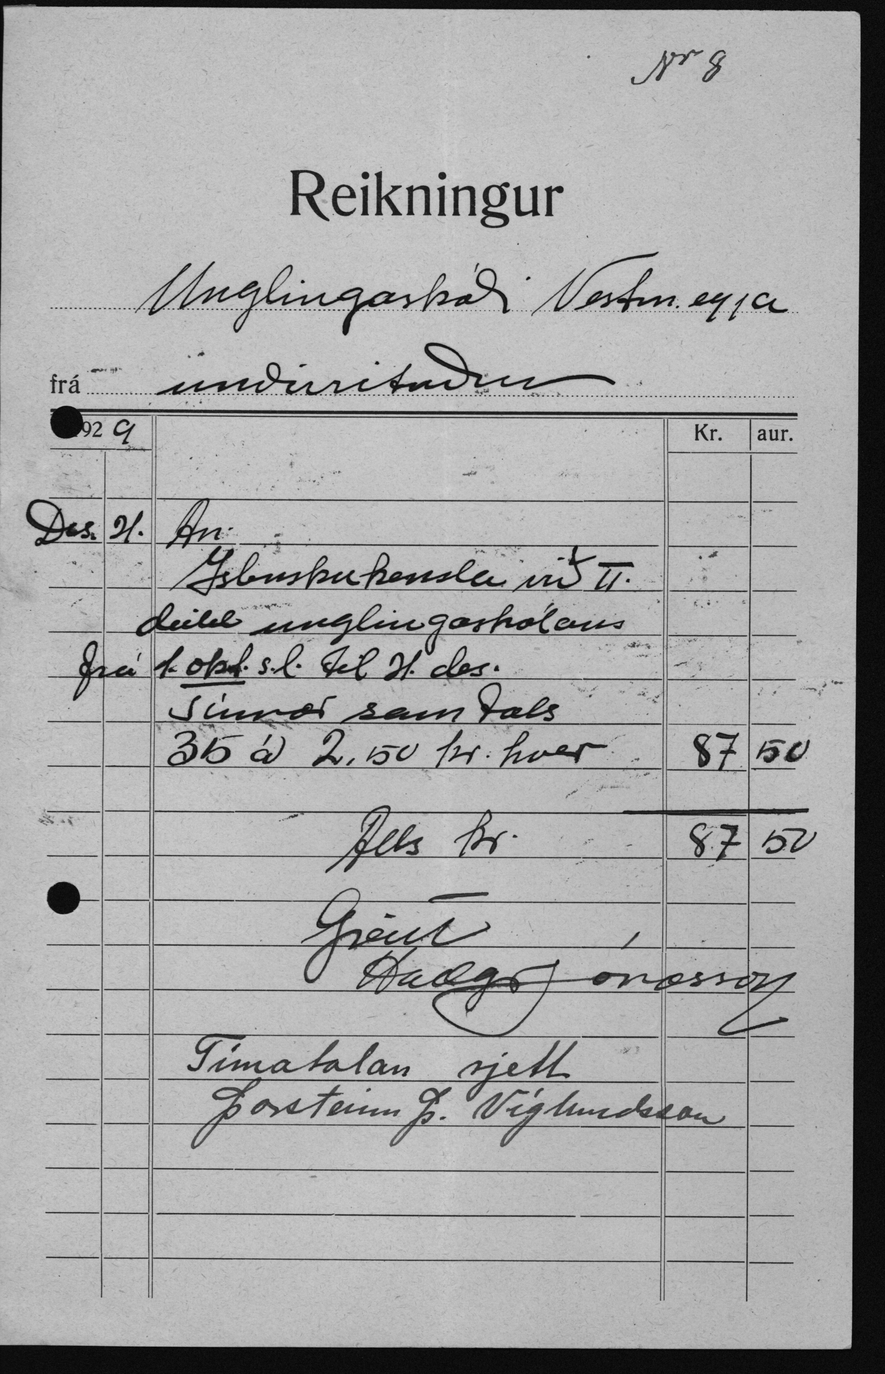 Nr 8
Reikningur
Unglingaskóli Vestm.eyja
frá undirrituðum
1929 Kr. aur.
Des. 21. An:
Íslenskukensla við II.
deild unglingaskólans
frá 1. okt. s.l. til 21. des.
samtals
35 á 2,50 kr. hver 87 50
Alls kr. 87 50
Greitt
Hallgr Jónasson
Tímatalan rjett
Þorsteinn Þ. Víglundsson